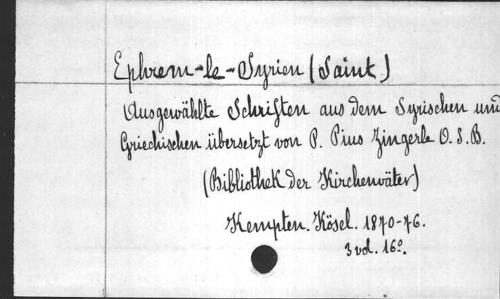 Ephrem-le-Syrien (Saint.)
Ausgewählte Schriften aus dem Syrischen und
Griechischen übersetzt von P. Pius Zingerle O. S. B.
(Bibliothek der Kirchenväter)
Kempten. Kösel. 1870-76.
3 vol. 16º.